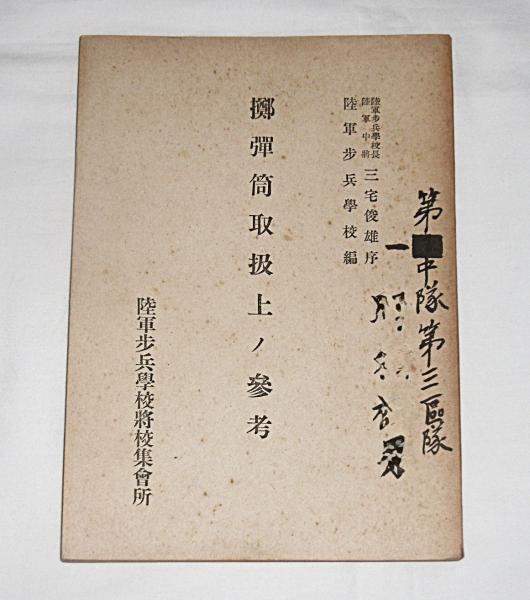 第一中隊第三區隊
陸軍步兵學校長
陸軍中將
三宅俊雄序
陸軍步兵學校編
擲彈筒取扱上ノ參考
陸軍步兵學校將校集會所